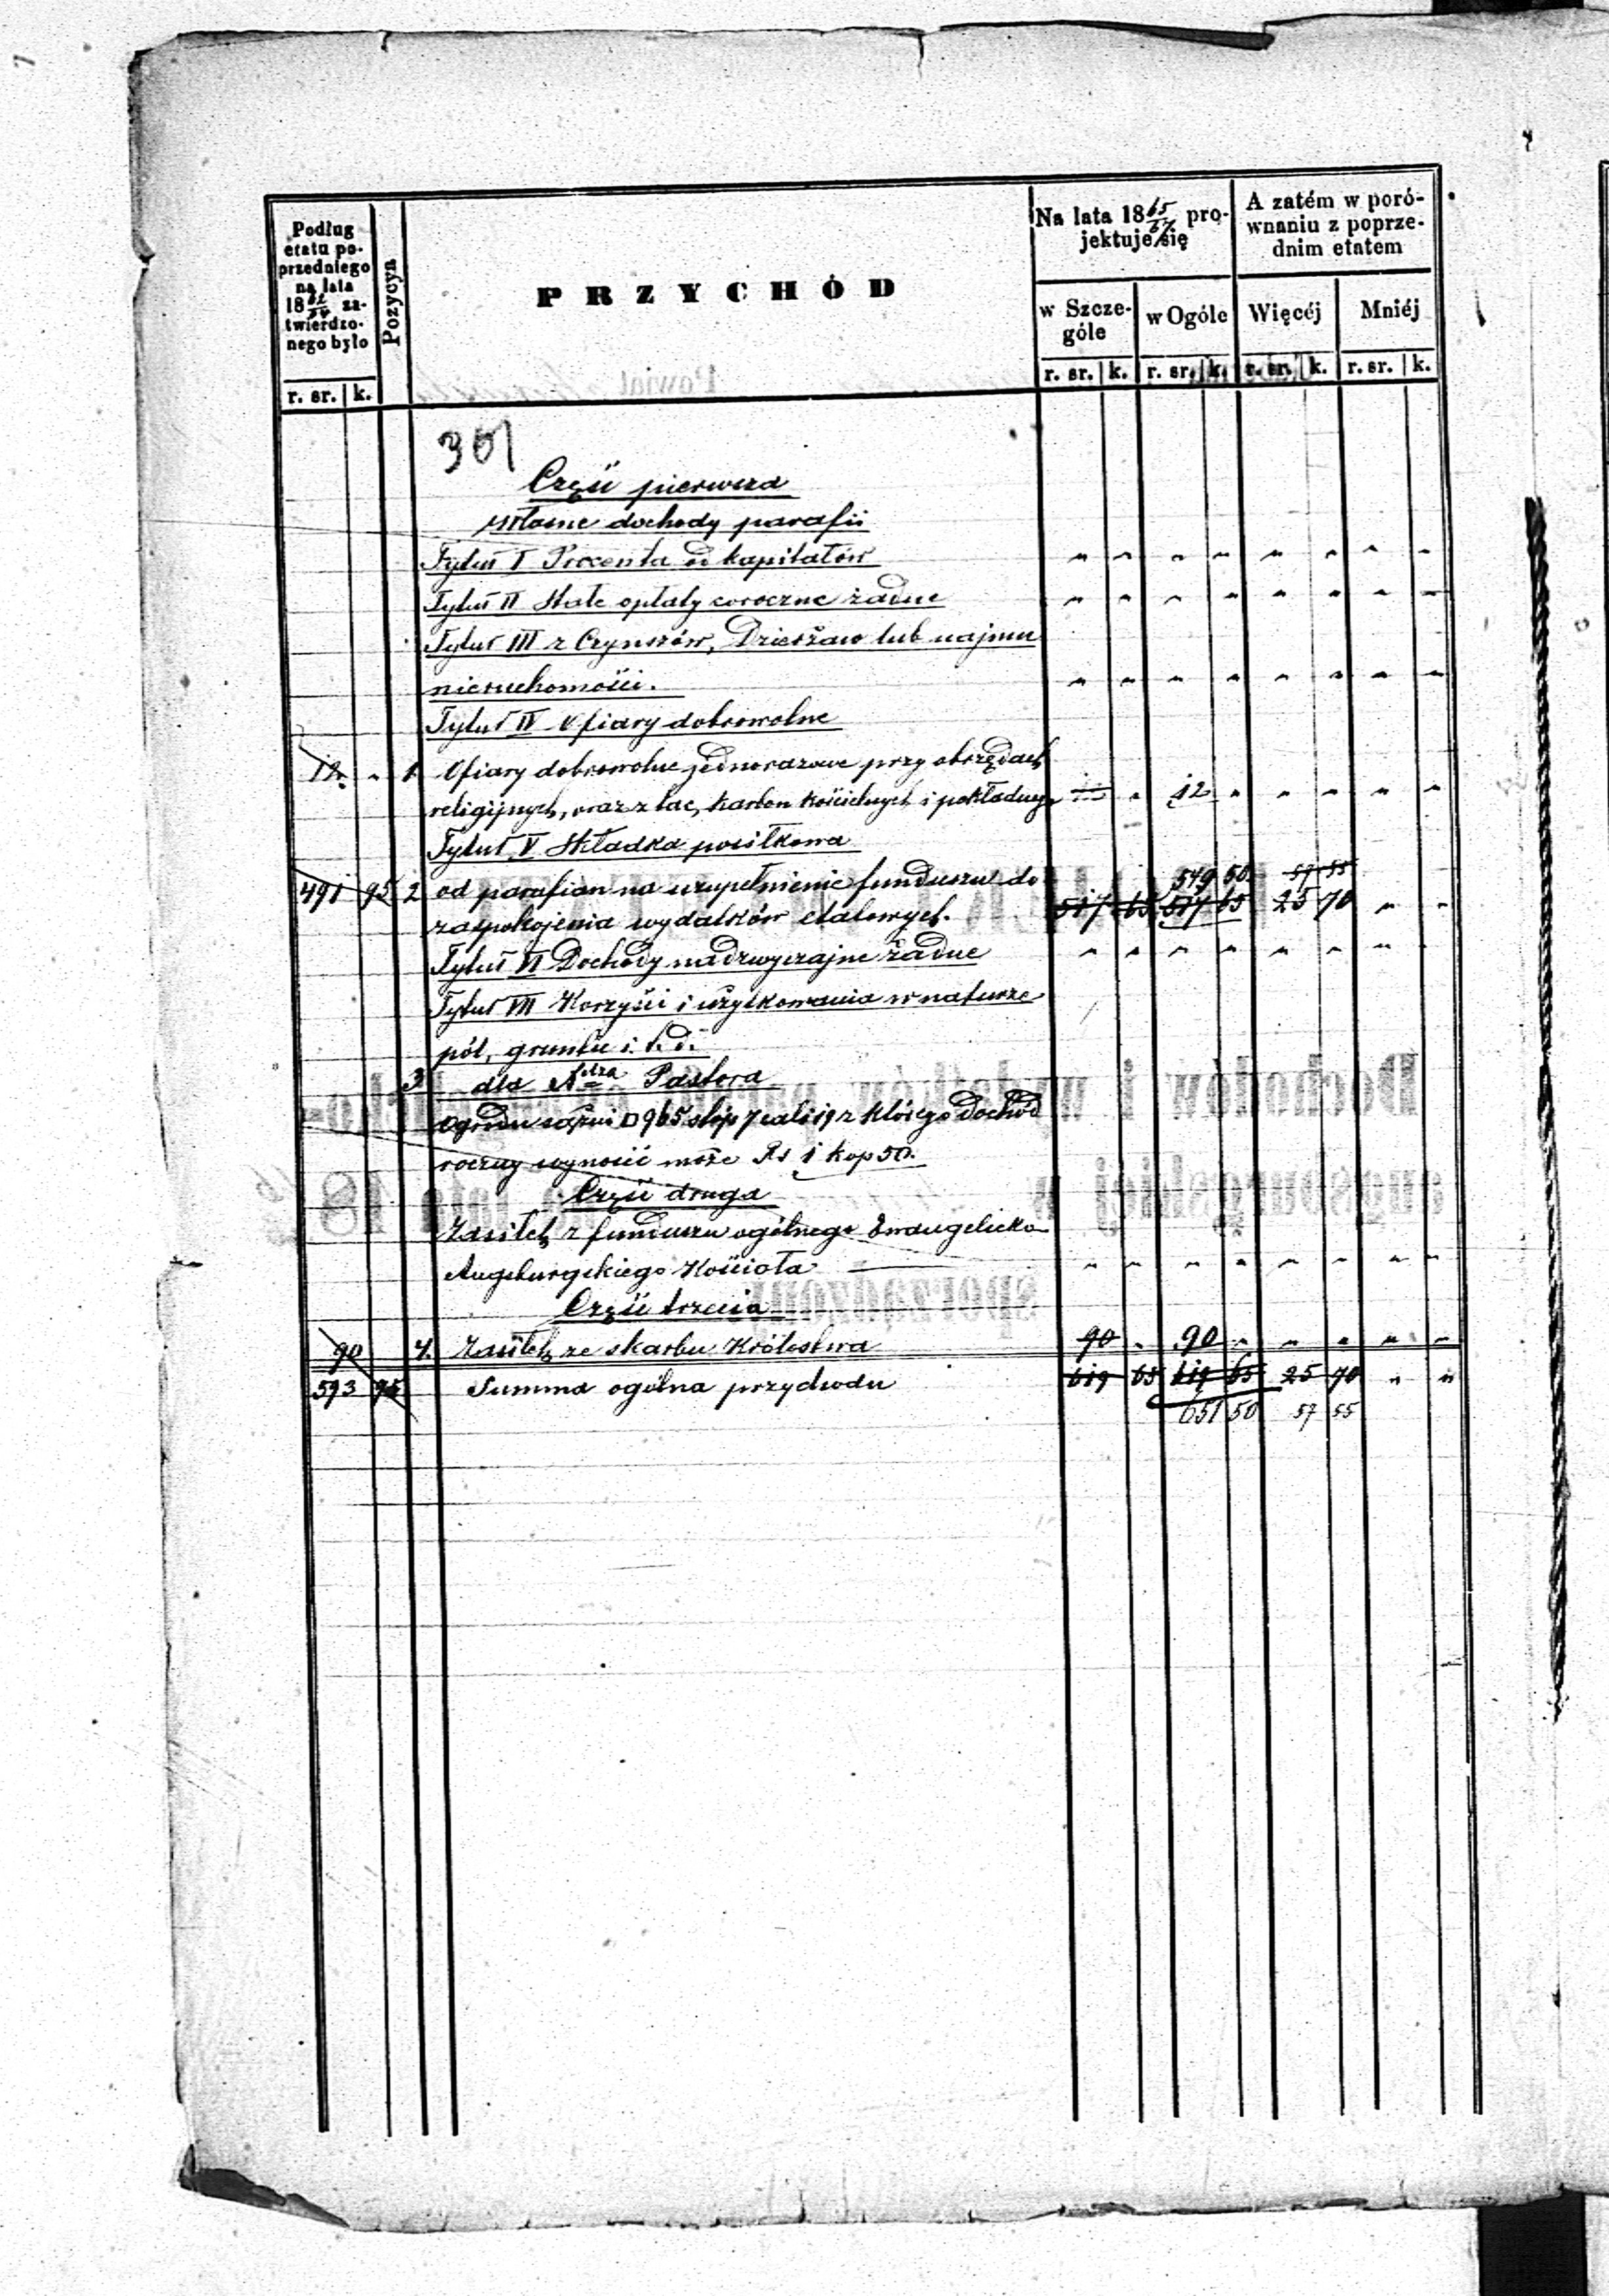 Podług etatu poprzedniego na lata 18 62/64 zatwierdzonego było
Pozycya
PRZYCHÓD
Na lata 18 65/67 projektuje się
A zatém w porównaniu z poprzednim etatem
w Szczególe
w Ogóle
Więcéj
Mniéj
r. sr. k. r. sr. k. r. sr. k. r. sr. k. r. sr. k.
301
Część pierwsza
Własne dochody parafii
Tytuł I Procenta od kapitałów " " " " " " " "
Tytuł II Stałe opłaty coroczne żadne " " " " " " " "
Tytuł III z Czynszów, Dzierżaw lub najmu
nieruchomości. " " " " " " " "
Tytuł IV Ofiary dobrowolne
12 " 1 Ofiary dobrowolne jednorazowe przy obrzędach
religijnych, oraz z tac, karbon kościelnych i pokładnego " 12 " " " " "
Tytuł V Składka posiłkowa
549 50 57 55
491 95 2 od parafian na uzupełnienie funduszu do
zaspokojenia wydatków etatowych. 517 65 517 65 25 70 " "
Tytuł VI Dochody nadzwyczajne żadne " " " " " " " "
Tytuł VII Korzyści i użytkowania w naturze
pól, gruntu i. t. d.
3 dla Pastora
Ogrodu sążni □ 965 stóp 7 cali 19 z którego dochód
roczny wynosić może Rs 1 kop 50.
Część druga
Zasiłek z funduszu ogólnego Ewangelicko
Augsburgskiego Kościoła " " " " " " " "
Część trzecia
90 4. Zasiłek ze skarbu Królestwa 90 " 90 " " " " "
593 95 Summa ogólna przychodu 619 65 619 65 25 70 " "
651 50 57 55